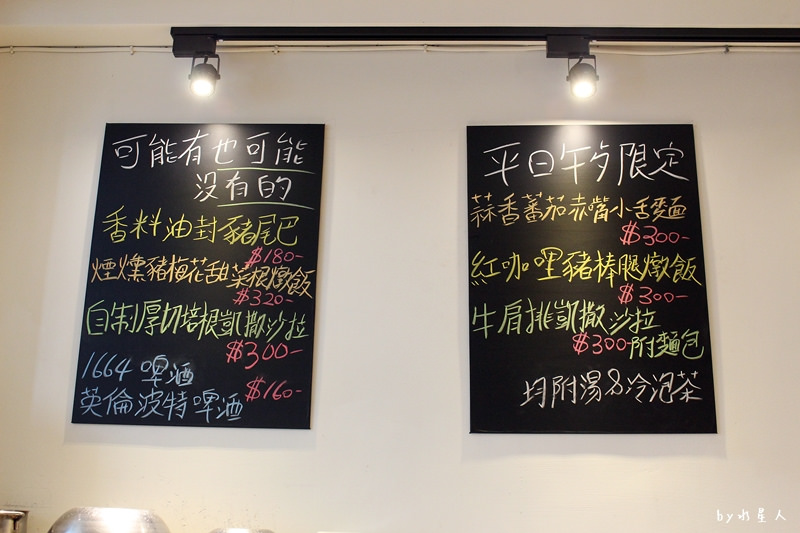 可能有也可能
沒有的
香料油封豬尾巴
$180-
煙燻豬梅花甜菜根燉飯
$320-
自制厚切培根凱撒沙拉
$300-
1664 啤酒
英倫波特啤酒 $160-
平日午夕限定
蒜香蕃茄赤嘴小舌麵
$300-
紅咖哩豬棒腿燉飯
$300-
牛肩排凱撒沙拉
$300- 附麵包
均附湯&冷泡茶
by水星人